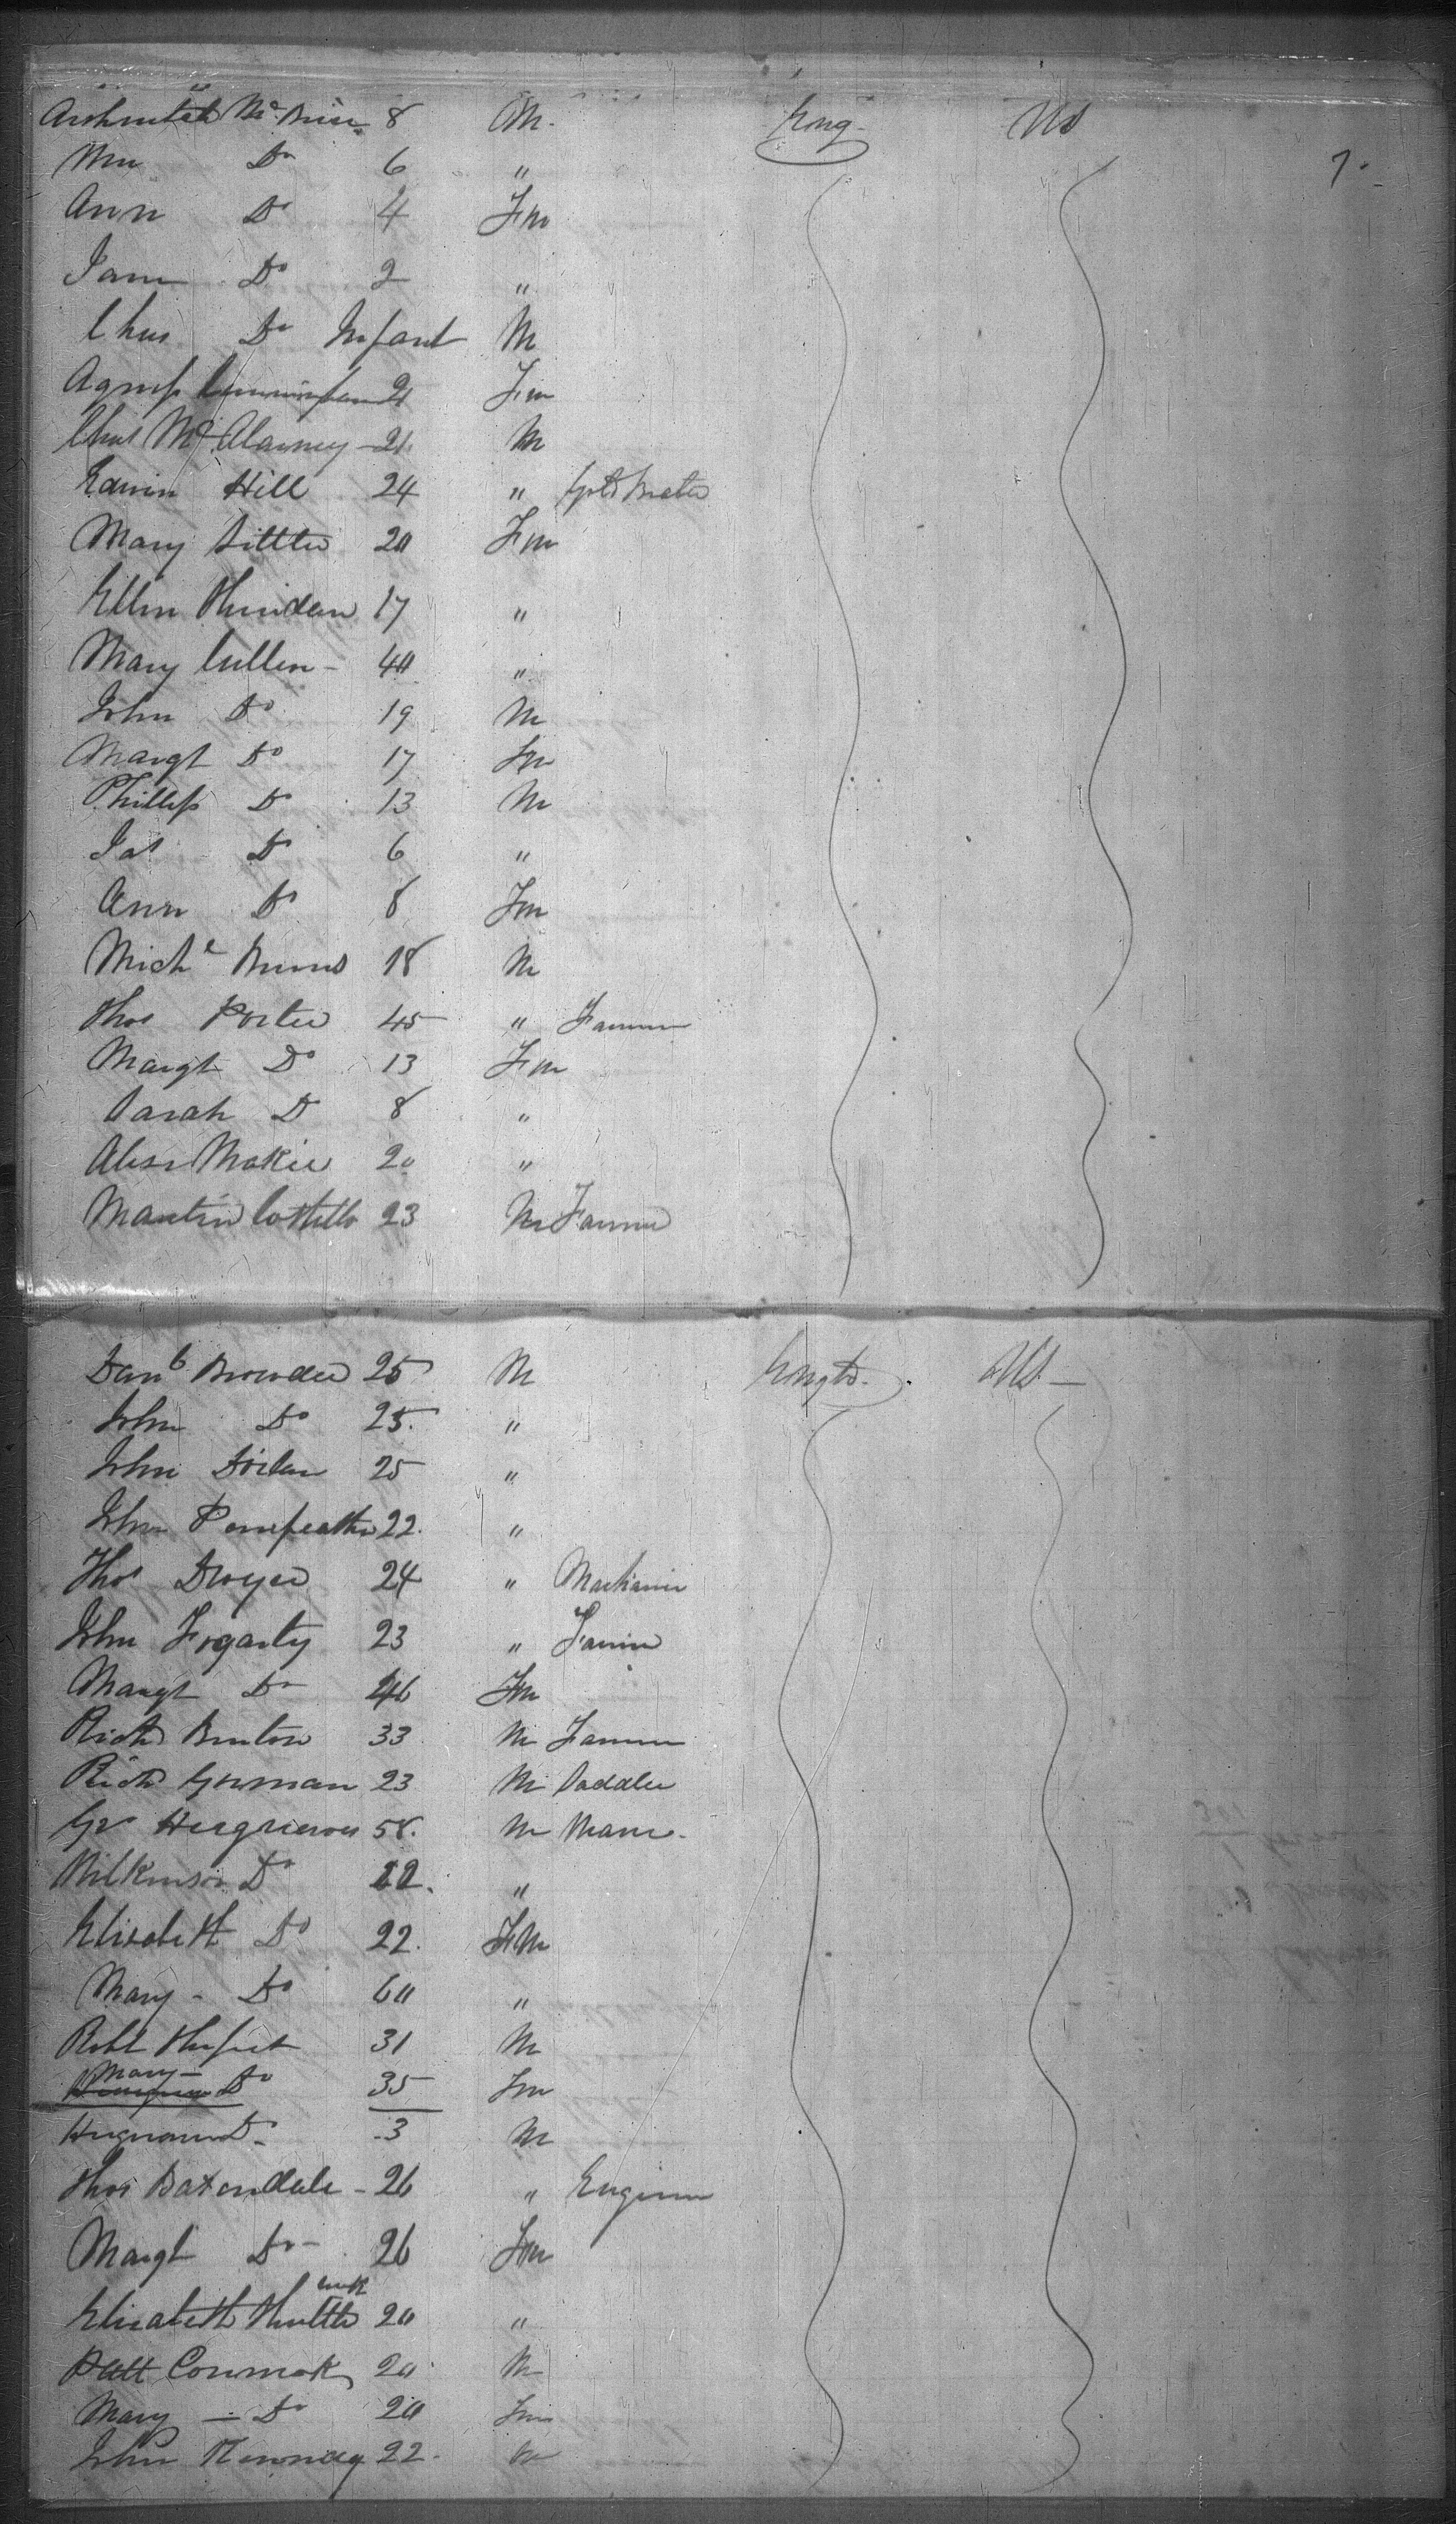 Mc 8 M. Eng. US
Wm Do 6 "
7.
Ann Do 4 Fm
Jane Do 2 "
Chas Do Infant M
Agness Cunningham 21 Fm
Chas 21 M
Edwin Hill 24 " Gold Beater
Mary 20 Fm
Ellen 17 "
Mary Cullen - 40 "
John Do 19 M
Margt Do 17 Fm
Phillip Do 13 M
Jas Do 6 "
Ann Do 8 Fm
Michl Burns 18 M
Thos Porter 45 " Farmer
Margt Do 13 Fm
Sarah Do 8 "
Makie 20 "
Martin Costello 23 M Farmer
Danl Browder 25 M Engld. US -
John Do 25. "
John 25 "
John 22. "
Thos Dwyer 24 " Mechanic
John Fogarty 23 " Farmer
Margt Do 46 Fm
Richd 33 M Farmer
Richd Gorman 23 M Saddler
58. M
Wilkinson Do 22. "
Elizabeth Do 22. Fm
Mary - Do 60 "
Robt 31 M
Mary - Do 35 Fm
Do - 3 M
Thos Baxendale - 26 " Engineer
Margt Do - 26 Fm
Elizabeth 20 "
Patt Cormack 20 M
Mary - Do 20 Fm
John 22. M